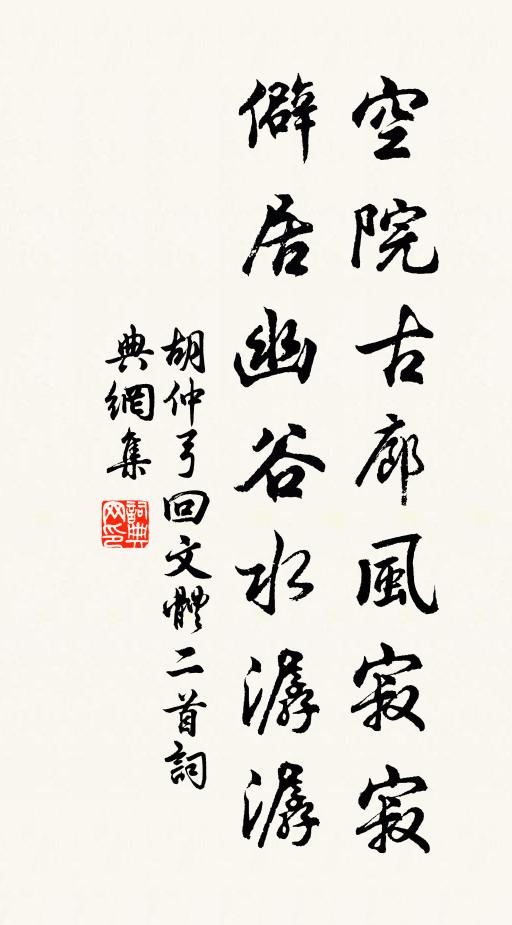 空院古廊風寂寂
僻居幽谷水潺潺
胡仲弓回文體二首詞
典網集
詞典網印